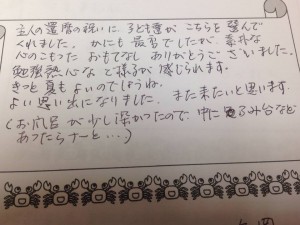 主人の還暦の祝いに子ども達がこちらを選んで
くれました。かにも最高でしたが、素朴な
心のこもったおもてなしありがとうございました。
勉強熱心なご様子が感じられます。
きっと夏もよいのでしょうね。
よい思い出になりました。また来たいと思います。
(お風呂が少し深かったので、中にふみ台など
あったらナーと…)